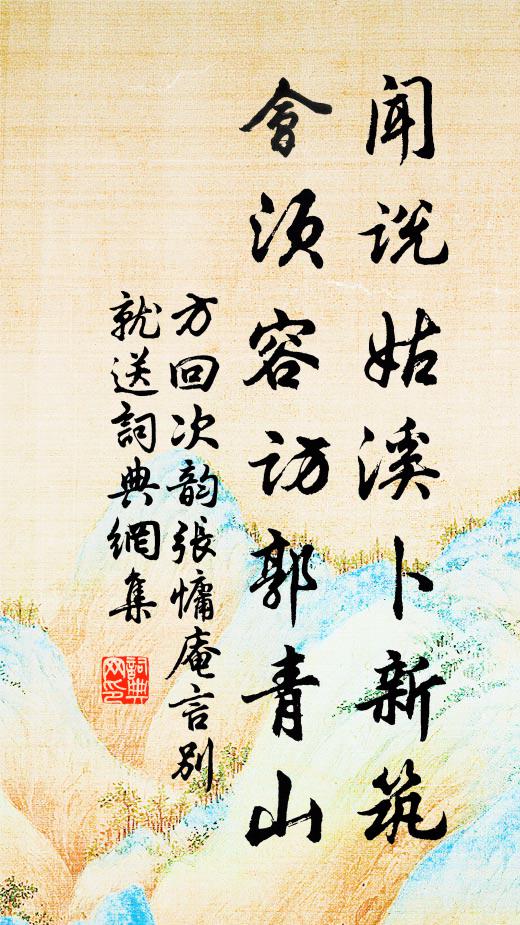 闻说姑溪卜新筑
會须容访郭青山
方回次韵張慵庵言别
就送詞典網集
詞典
网印